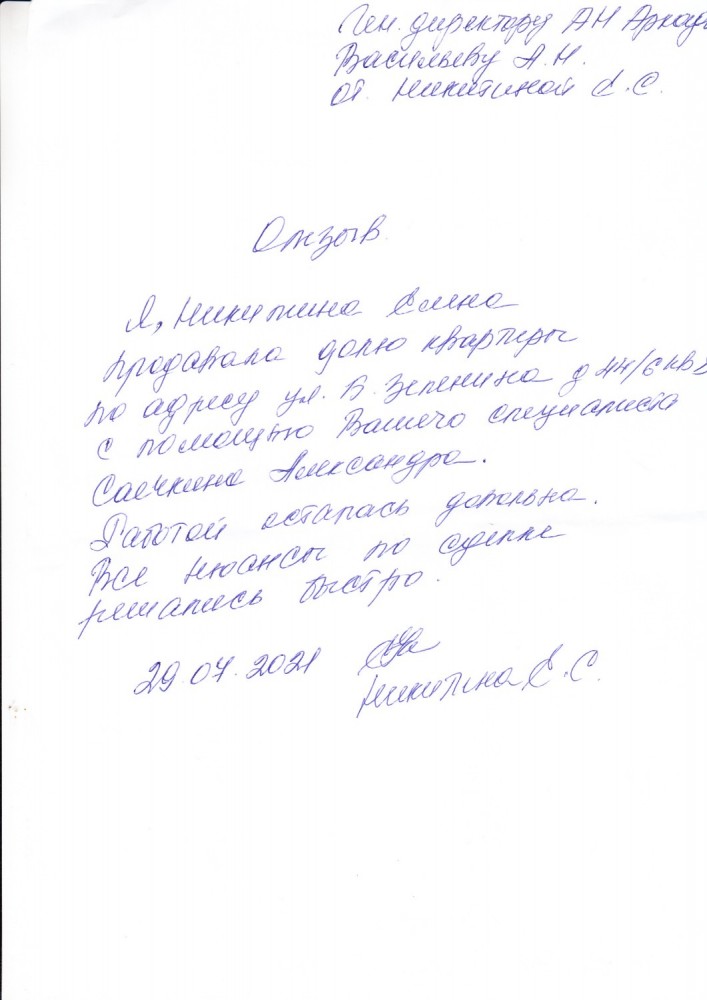 Ген. директору АН Аркада
Васильеву А.Н.
от Никитиной Е.С.
Отзыв
Я, Никитина Елена
продавала долю квартиры
по адресу ул. Б. Зеленина д 44/6 кв
с помощью Вашего специалиста
Саечкина Александра.
Работой осталась довольна.
Все нюансы по сделке
решались быстро.
29.07.2021
Никитина Е.С.